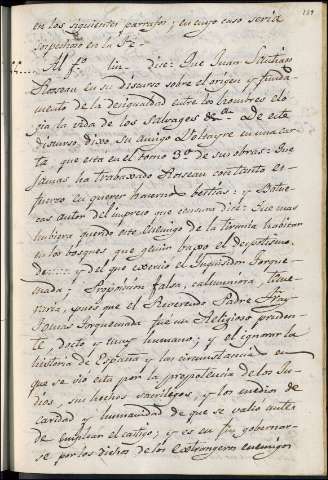 en los siguientes parrafos; en cuyo caso sería
sospechoso en la Fe.
Al fo. lin dize: Que Juan Santiago
Roseau en su discurso sobre el origen y funda-
mento de la desigualdad entre los hombres elo-
gia la vida de los Salvages &a. De este
discurso, dixo su amigo Voltayre en una car-
ta que está en el tomo 3o. de sus obras: Que
jamas ha trabaxado Roseau con tanto es-
fuerzo en querer hacernos bestias: y
autor del impreso que censura dice: Que mas
hubiera querido este enemigo de la tirania habitar
en los bosques que gemir baxo el despotismo.
y del que exercio el Inquisidor Torque-
mada; Proposicion falsa, calumniosa, teme-
raria, pues que el Reverendo Padre Fray
Tomas Torquemada fue un Religioso pruden-
te, docto y muy humano; y el ignorar la
historia de España y las circunstancias en
que se vio esta por la prepotencia de los Ju-
dios, sus hechos sacrilegos, y los medios de
caridad y humanidad de que se valió antes
de emplear el castigo; y es en fin gobernar-
se por los dichos de los extrangeros enemigos